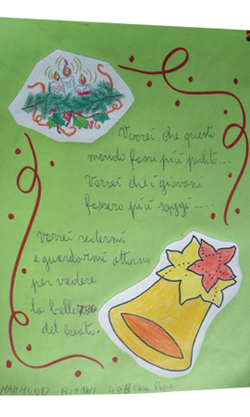 Vorrei che questo
mondo fosse più pulito...
Vorrei che i giovani
fossero più saggi....
Vorrei sedermi
e guardarmi attorno
per vedere
la bellezza
del creato.
MAHMOUD